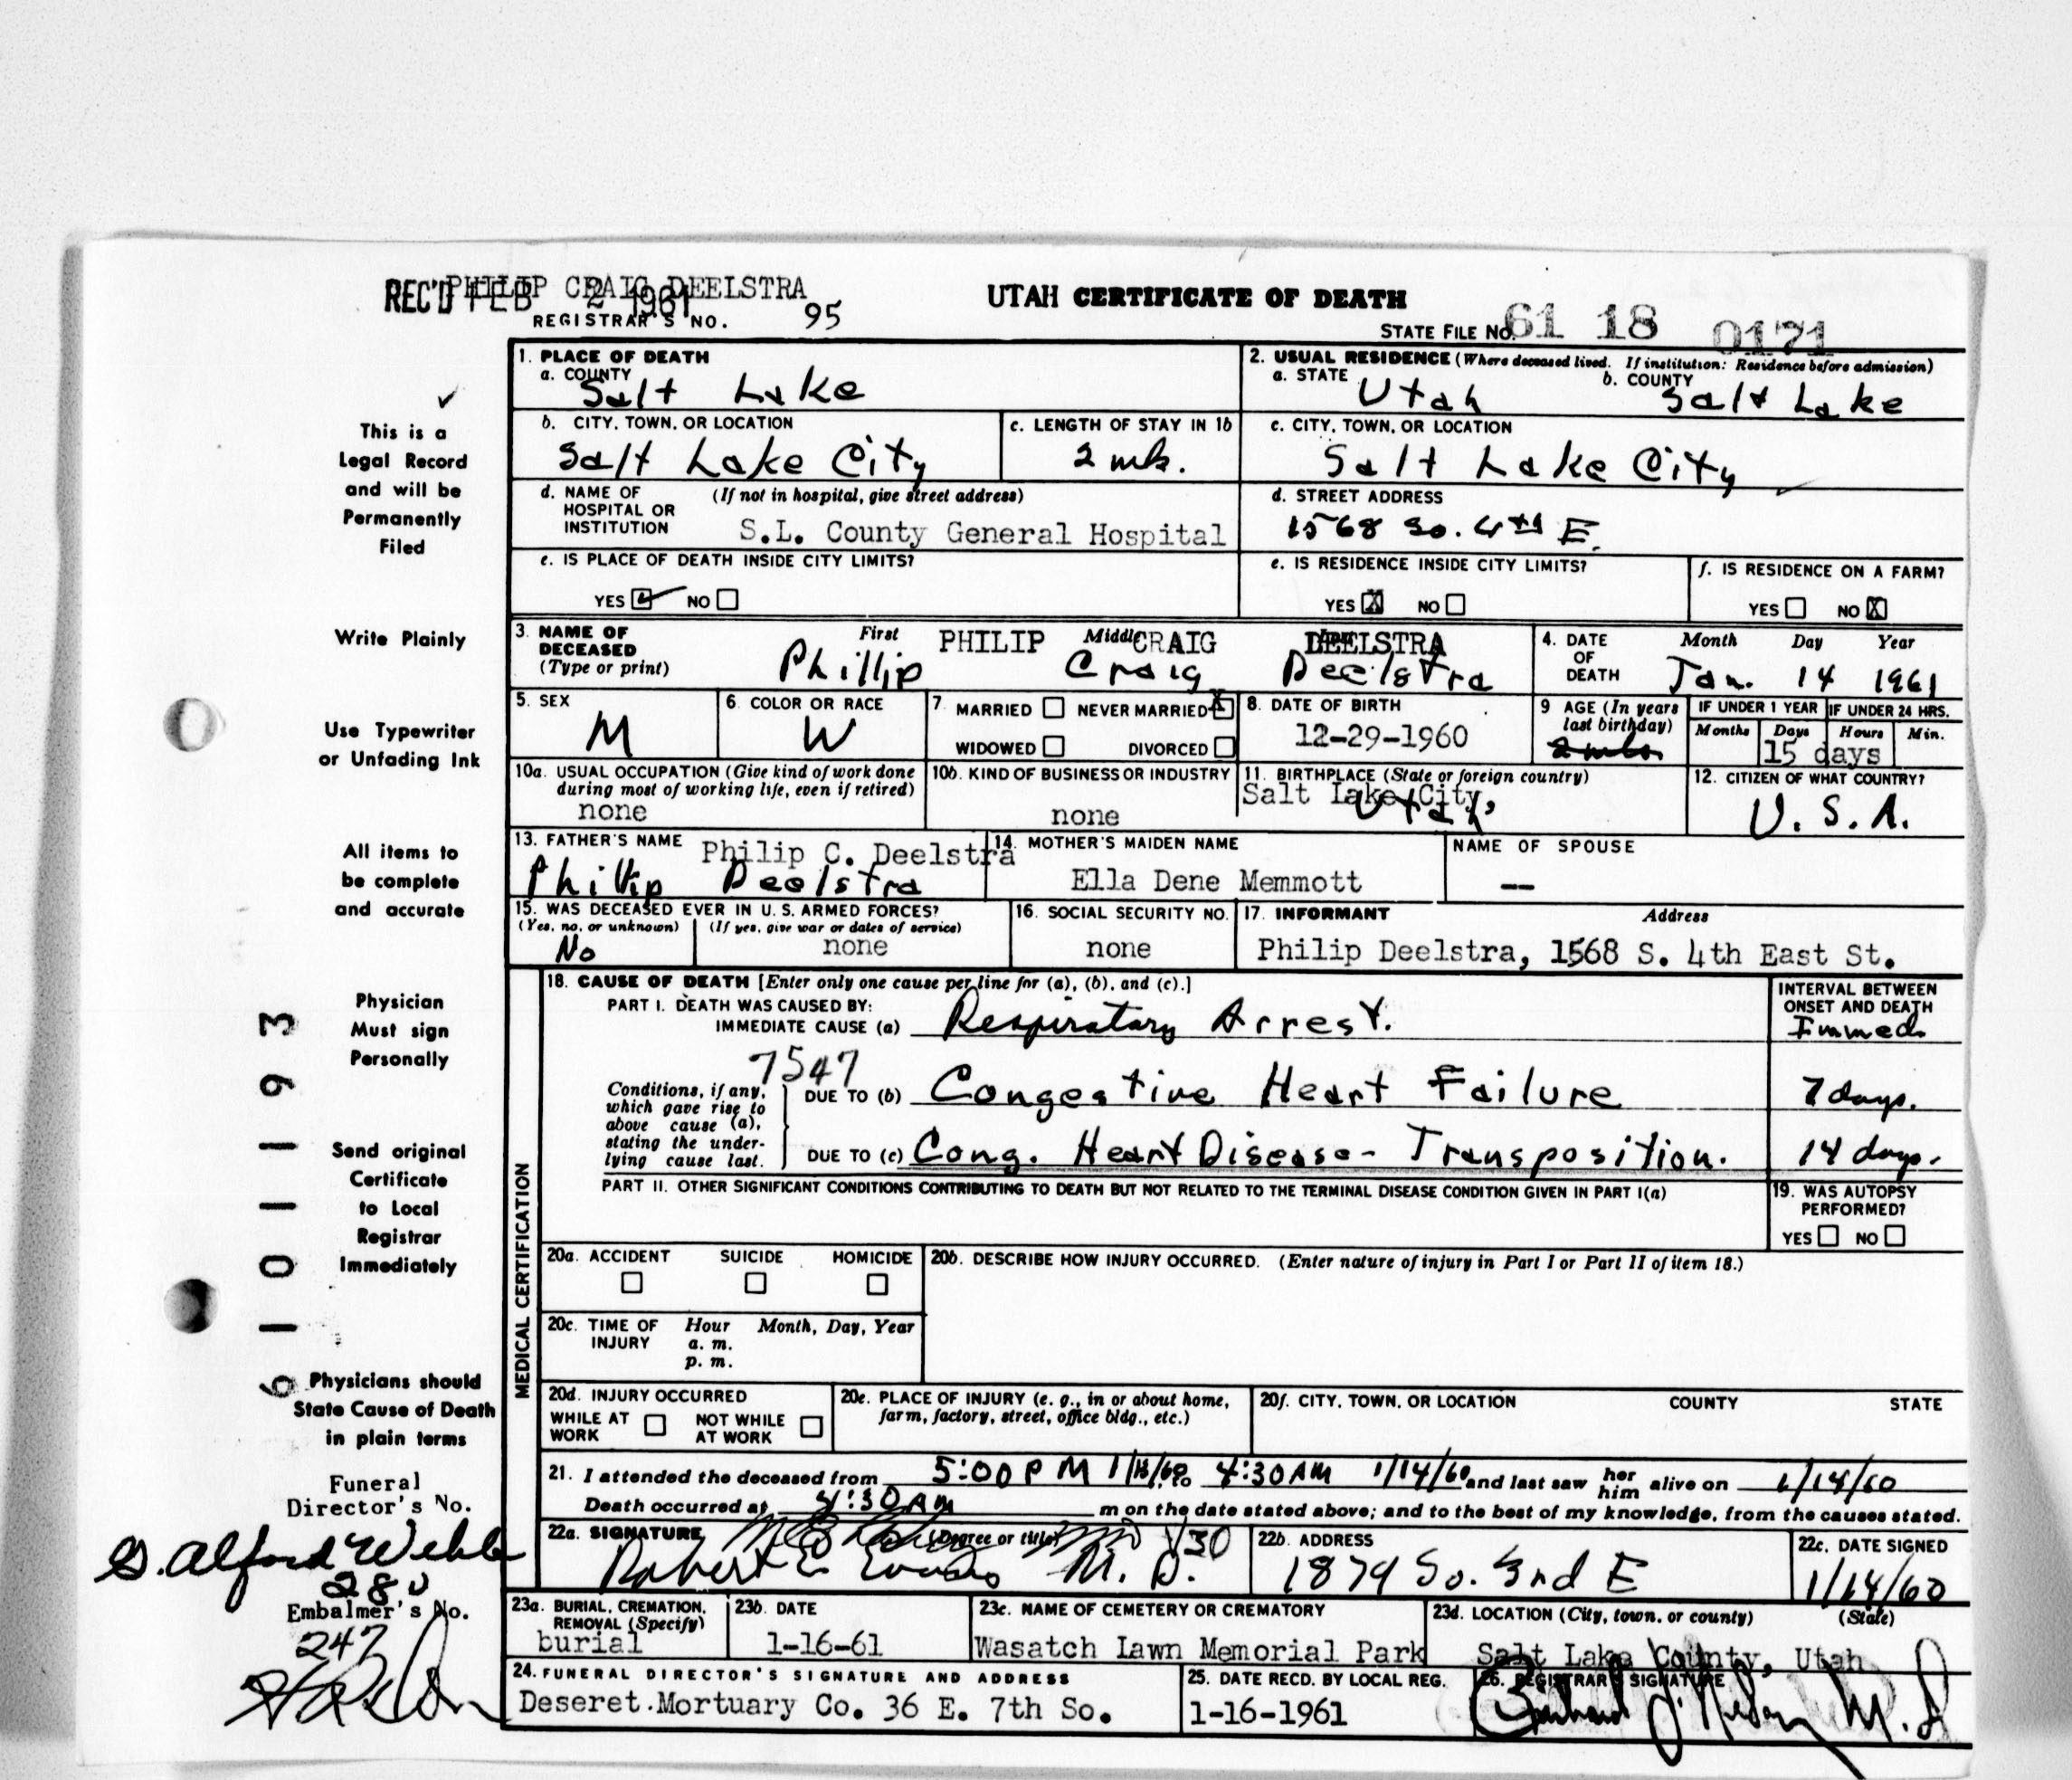 PHILIP CRAIG DEELSTRA
REC'D FEB 2 1961
UTAH CERTIFICATE OF DEATH
REGISTRAR'S NO. 95
STATE FILE NO. 61 18 0171
1. PLACE OF DEATH
a. COUNTY
Salt Lake
2. USUAL RESIDENCE (Where deceased lived. If institution: Residence before admission)
a. STATE Utah b. COUNTY Salt Lake
b. CITY, TOWN, OR LOCATION
Salt Lake City
c. LENGTH OF STAY IN 1b
c. CITY, TOWN, OR LOCATION
Salt Lake City
d. NAME OF HOSPITAL OR INSTITUTION (If not in hospital, give street address)
S.L. County General Hospital
d. STREET ADDRESS
1568 So. 4th E.
e. IS PLACE OF DEATH INSIDE CITY LIMITS?
YES NO
e. IS RESIDENCE INSIDE CITY LIMITS?
YES X NO
f. IS RESIDENCE ON A FARM?
YES NO X
3. NAME OF DECEASED (Type or print)
First Middle
PHILIP CRAIG DEELSTRA
Phillip Craig Deelstra
4. DATE OF DEATH
Month Day Year
Jan. 14 1961
5. SEX
M
6. COLOR OR RACE
W
7. MARRIED NEVER MARRIED X
WIDOWED DIVORCED
8. DATE OF BIRTH
12-29-1960
9 AGE (In years last birthday)
IF UNDER 1 YEAR IF UNDER 24 HRS.
Months Days Hours Min.
15 days
10a. USUAL OCCUPATION (Give kind of work done during most of working life, even if retired)
none
10b. KIND OF BUSINESS OR INDUSTRY
none
11. BIRTHPLACE (State or foreign country)
Salt Lake City,
Utah
12. CITIZEN OF WHAT COUNTRY?
U.S.A.
13. FATHER'S NAME
Philip C. Deelstra
Phillip Deelstra
14. MOTHER'S MAIDEN NAME
Ella Dene Memmott
NAME OF SPOUSE
—
15. WAS DECEASED EVER IN U.S. ARMED FORCES?
(Yes, no, or unknown) (If yes, give war or dates of service)
No none
16. SOCIAL SECURITY NO.
none
17. INFORMANT Address
Philip Deelstra, 1568 S. 4th East St.
MEDICAL CERTIFICATION
18. CAUSE OF DEATH [Enter only one cause per line for (a), (b), and (c).]
INTERVAL BETWEEN ONSET AND DEATH
PART I. DEATH WAS CAUSED BY:
IMMEDIATE CAUSE (a) Respiratory Arrest. Immed.
7547
Conditions, if any, which gave rise to above cause (a), stating the underlying cause last.
DUE TO (b) Congestive Heart Failure 7 days.
DUE TO (c) Cong. Heart Disease - Transposition. 14 days.
PART II. OTHER SIGNIFICANT CONDITIONS CONTRIBUTING TO DEATH BUT NOT RELATED TO THE TERMINAL DISEASE CONDITION GIVEN IN PART I(a)
19. WAS AUTOPSY PERFORMED?
YES NO
20a. ACCIDENT SUICIDE HOMICIDE
20b. DESCRIBE HOW INJURY OCCURRED. (Enter nature of injury in Part I or Part II of item 18.)
20c. TIME OF INJURY
Hour Month, Day, Year
a. m.
p. m.
20d. INJURY OCCURRED
WHILE AT WORK NOT WHILE AT WORK
20e. PLACE OF INJURY (e. g., in or about home, farm, factory, street, office bldg., etc.)
20f. CITY, TOWN, OR LOCATION COUNTY STATE
21. I attended the deceased from 5:00 PM to 4:30 AM 1/14/60 and last saw her him alive on 1/14/60
Death occurred at 4:30 AM m on the date stated above; and to the best of my knowledge, from the causes stated.
22a. SIGNATURE (Degree or title)
Robert E. Evans M.D.
22b. ADDRESS
1879 So. 3rd E
22c. DATE SIGNED
1/14/60
23a. BURIAL, CREMATION, REMOVAL (Specify)
burial
23b. DATE
1-16-61
23c. NAME OF CEMETERY OR CREMATORY
Wasatch Lawn Memorial Park
23d. LOCATION (City, town, or county) (State)
Salt Lake County, Utah
24. FUNERAL DIRECTOR'S SIGNATURE AND ADDRESS
Deseret Mortuary Co. 36 E. 7th So.
25. DATE RECD. BY LOCAL REG.
1-16-1961
26. REGISTRAR'S SIGNATURE
This is a
Legal Record
and will be
Permanently
Filed
Write Plainly
Use Typewriter
or Unfading Ink
All items to
be complete
and accurate
Physician
Must sign
Personally
Send original
Certificate
to Local
Registrar
Immediately
Physicians should
State Cause of Death
in plain terms
Funeral
Director's No.
S. Alford Webb
280
Embalmer's No.
247
6101193